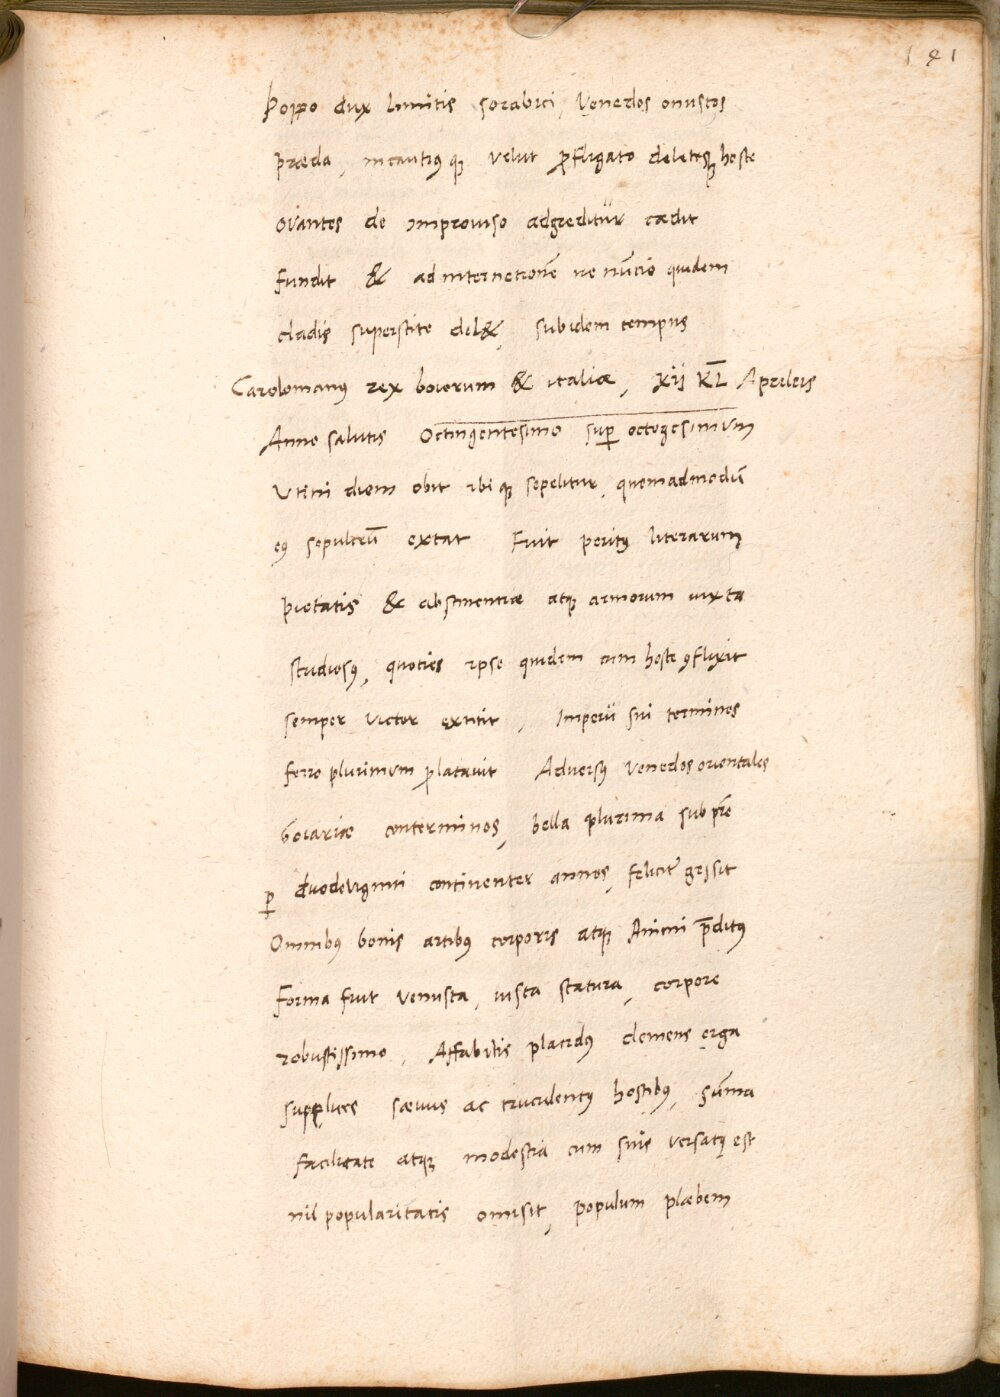 191
Poppo dux limitis sorabici, Venedos onustos
præda, incautiꝰ qꝫ velut ꝓfligato deletoqꝫ hoste
ovantes de improviso adgreditur cædit
fundit & ad internetionē ne nūcio quidem
cladis superstite del&, sub idem tempus
Carolomanꝰ rex boiorum & italiæ, xij KL̄ Aprileis
Anno salutis Octingentesimo suꝑ octogesimum
Utini diem obit ibi qꝫ sepelitur, quemadmodū
eiꝰ sepulcrū extat Fuit peritꝰ literarum
pietatis & abstinentiæ atqꝫ armorum iuxta
studiosꝰ, quoties ipse quidem cum hoste ꝯflixit
semper victor extitit, Imperii sui terminos
ferro plurimum ꝓlatavit Adversꝰ Venedos orientales
boiariæ conterminos, bella plurima sub pr̄e
ꝑ duodeviginti continenter annos, felicit̄ gessit
Omnibꝰ bonis artibꝰ corporis atqꝫ Animi p̄ditꝰ
Forma fuit venusta, iusta statura, corpore
robustissimo, Affabilis placidꝰ clemens erga
supplices sævus ac truculentꝰ hostibꝰ, sūma
facilitate atqꝫ modestia cum suis versatꝰ est
nil popularitatis omisit, populum plæbem